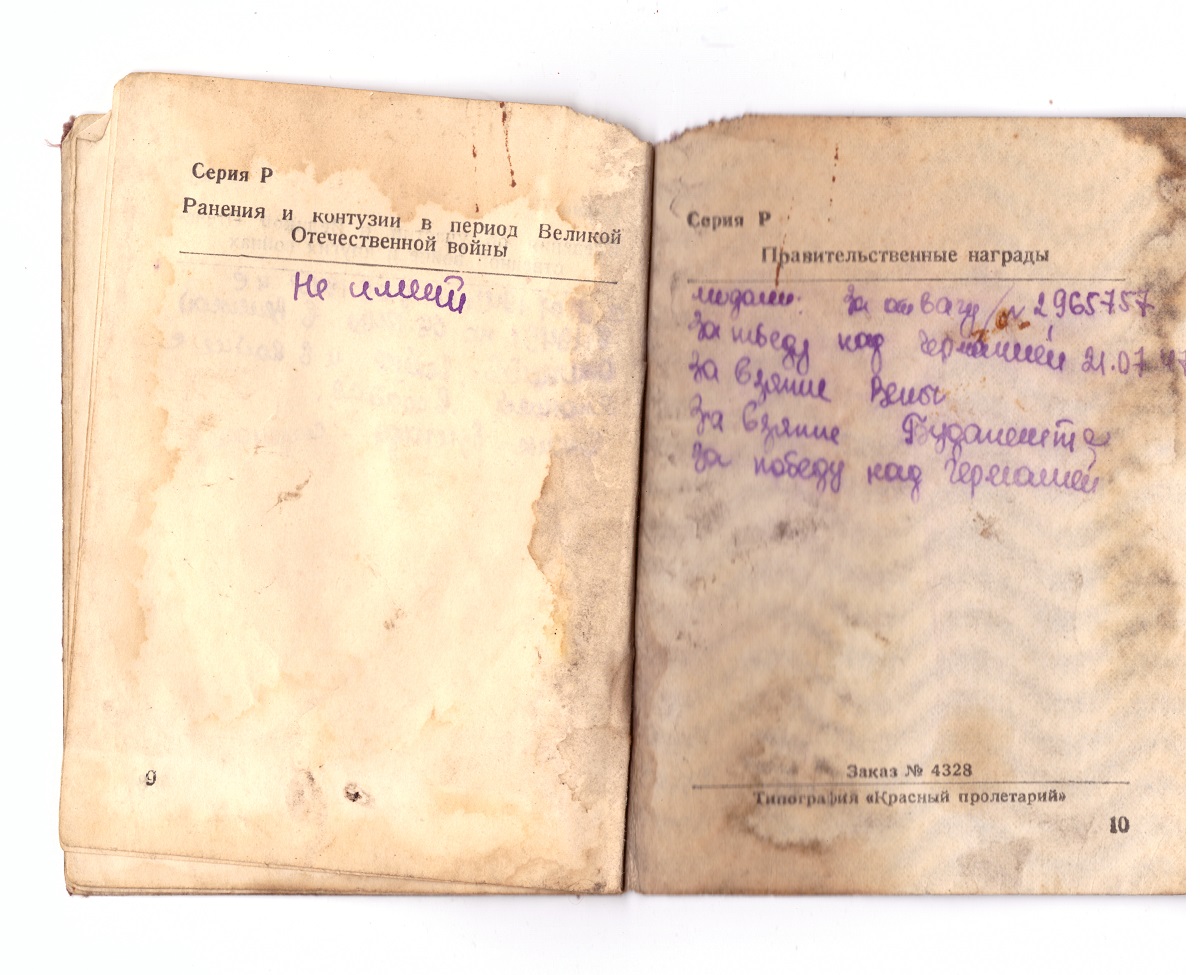 Серия Р
Ранения и контузии в период Великой
Отечественной войны
Не имеет
9
Серия Р
Правительственные награды
медали: За отвагу / № 2965757
За победу над Германией 21.07.47
За взятие Вены
За взятие Будапешта
За победу над Германией
Заказ № 4328
Типография «Красный пролетарий»
10